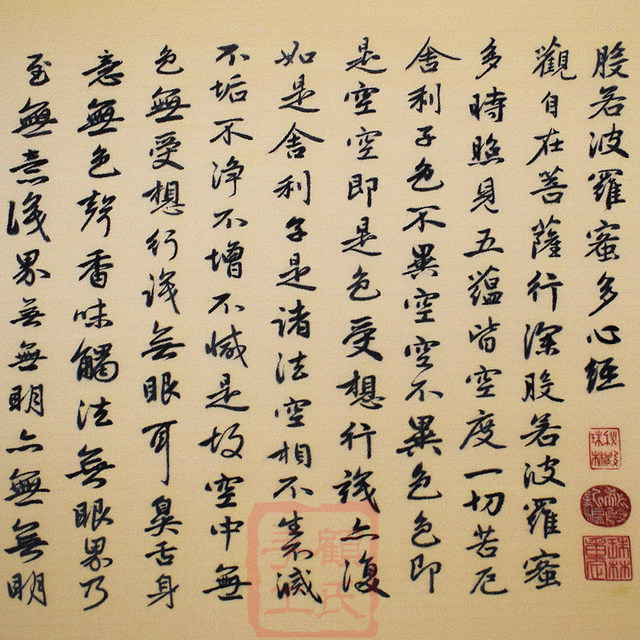 般若波羅蜜多心經
觀自在菩薩行深般若波羅蜜
多時照見五蘊皆空度一切苦厄
舍利子色不異空空不異色色即
是空空即是色受想行識亦復
如是舍利子是諸法空相不生不滅
不垢不淨不增不減是故空中無
色無受想行識無眼耳鼻舌身
意無色聲香味觸法無眼界乃
至無意識界無無明亦無無明
顧氏